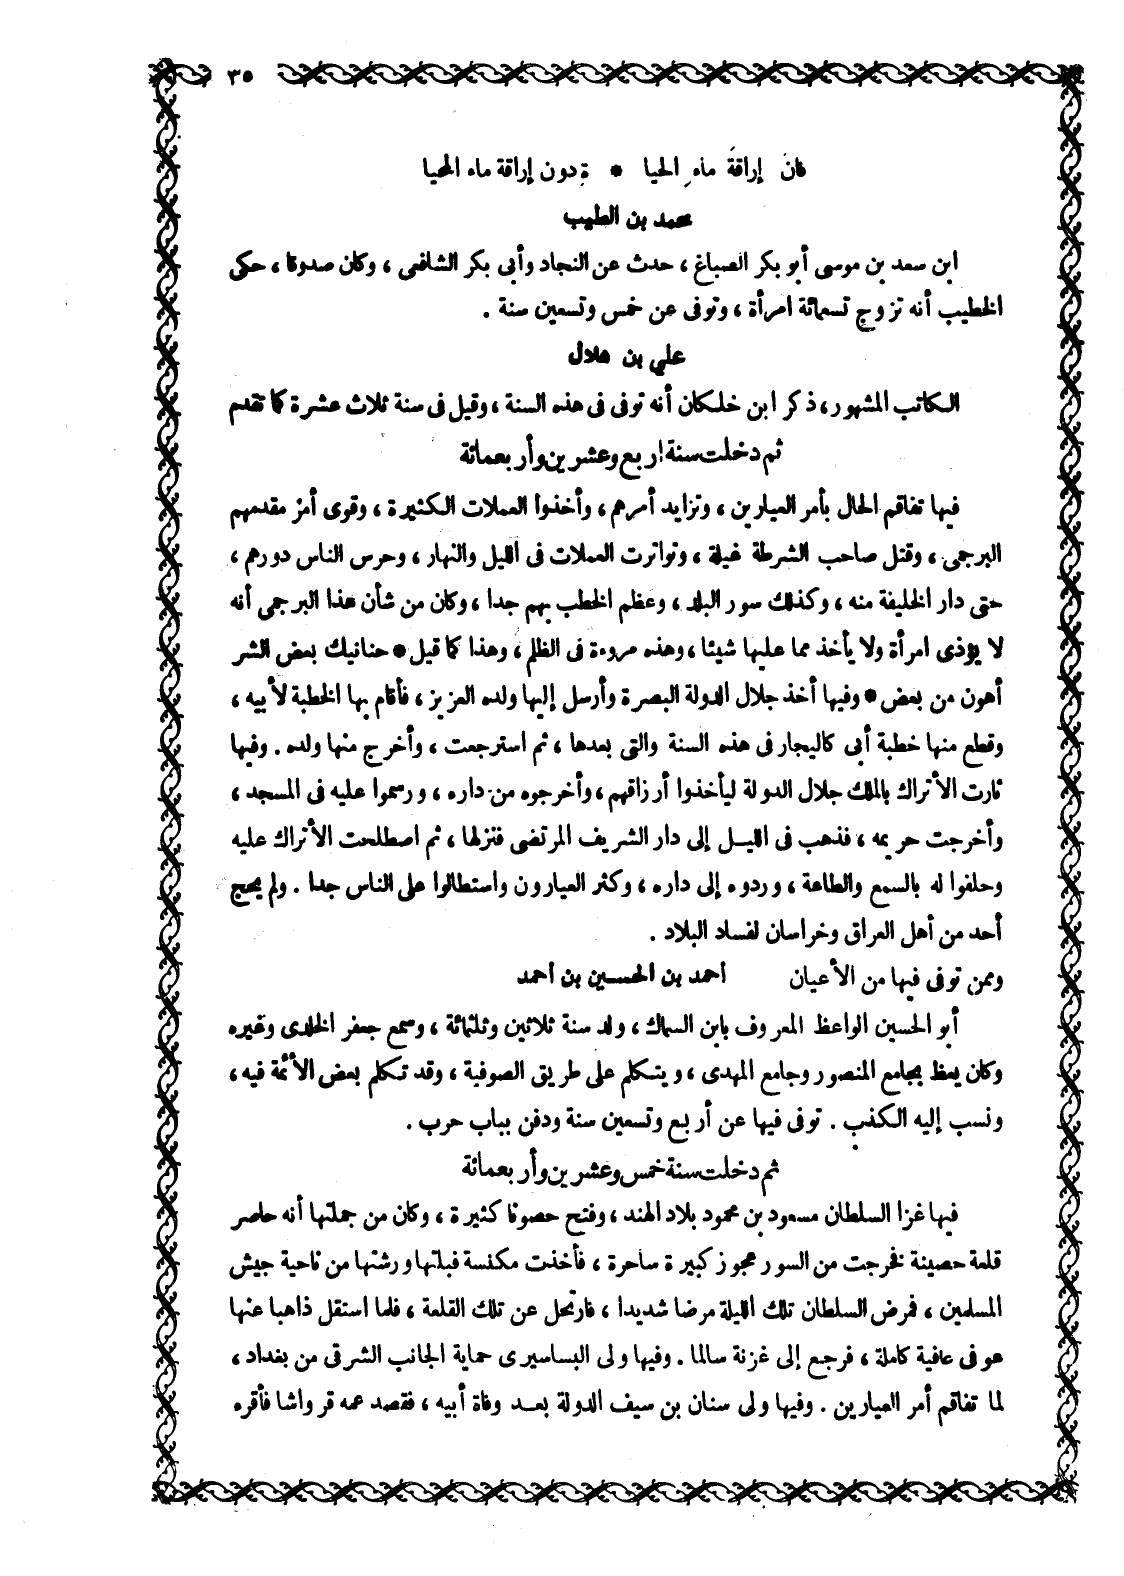 ٣٥
فان إراقة ماء الحيا * ة دون إراقة ماء المحيا
محمد بن الطيب
ابن سعد بن موسى أبو بكر الصباغ ، حدث عن النجاد وأبى بكر الشافعى ، وكان صدوقا ، حكى
الخطيب أنه تزوج تسعمائة امرأة ، وتوفى عن خمس وتسعين سنة .
علي بن هلال
الكاتب المشهور ، ذكر ابن خلكان أنه توفى فى هذه السنة ، وقيل فى سنة ثلاث عشرة كما تقدم
ثم دخلت سنة اربع وعشرين وأربعمائة
فيها تفاقم الحال بأمر العيارين ، وتزايد أمرهم ، وأخذوا العملات الكثيرة ، وقوى أمر مقدمهم
البرجمى ، وقتل صاحب الشرطة غيلة ، وتواترت العملات فى الليل والنهار ، وحرس الناس دورهم ،
حتى دار الخليفة منه ، وكذلك سور البلد ، وعظم الخطب بهم جدا ، وكان من شأن هذا البرجمى أنه
لا يؤذى امرأة ولا يأخذ مما عليها شيئا ، وهذه مروءة فى الظلم ، وهذا كما قيل * حنانيك بعض الشر
أهون من بعض * وفيها أخذ جلال الدولة البصرة وأرسل إليها ولده العزيز ، فأقام بها الخطبة لأبيه ،
وقطع منها خطبة أبى كاليجار فى هذه السنة والتى بعدها ، ثم استرجعت ، وأخرج منها ولده . وفيها
ثارت الأتراك بالملك جلال الدولة ليأخذوا أرزاقهم ، وأخرجوه من داره ، ورسموا عليه فى المسجد ،
وأخرجت حريمه ، فذهب فى الليل إلى دار الشريف المرتضى فنزلها ، ثم اصطلحت الأتراك عليه
وحلفوا له بالسمع والطاعة ، وردوه إلى داره ، وكثر العيارون واستطالوا على الناس جدا . ولم يحج
أحد من أهل العراق وخراسان لفساد البلاد .
وممن توفى فيها من الأعيان أحمد بن الحسين بن أحمد
أبو الحسين الواعظ المعروف بابن السماك ، ولد سنة ثلاثين وثلثمائة ، وسمع جعفر الخلدى وغيره
وكان يعظ بجامع المنصور وجامع المهدى ، ويتكلم على طريق الصوفية ، وقد تكلم بعض الأئمة فيه ،
ونسب إليه الكذب . توفى فيها عن أربع وتسعين سنة ودفن بباب حرب .
ثم دخلت سنة خمس وعشرين وأربعمائة
فيها غزا السلطان مسعود بن محمود بلاد الهند ، وفتح حصونا كثيرة ، وكان من جملتها أنه حاصر
قلعة حصينة فخرجت من السور عجوز كبيرة ساحرة ، فأخذت مكنسة فبلتها ورشتها من ناحية جيش
المسلمين ، فمرض السلطان تلك الليلة مرضا شديدا ، فارتحل عن تلك القلعة ، فلما استقل ذاهبا عنها
عوفى عافية كاملة ، فرجع إلى غزنة سالما . وفيها ولى البساسيرى حماية الجانب الشرقى من بغداد ،
لما تفاقم أمر العيارين . وفيها ولى سنان بن سيف الدولة بعد وفاة أبيه ، فقصد عمه قرواشا فأقره